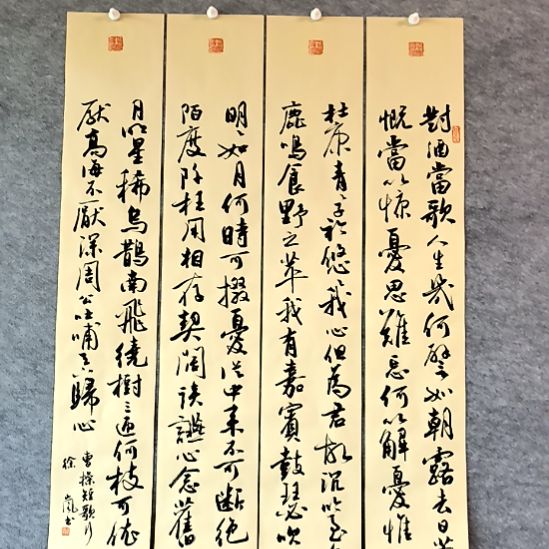 對酒當歌人生幾何譬如朝露去日
慨當以慷憂思難忘何以解憂惟
杜康青々子衿悠々我心但為君故沉吟至
鹿鳴食野之苹我有嘉賓鼓瑟吹
明々如月何時可掇憂從中來不可斷絕
陌度阡枉用相存契闊談讌心念舊
月明星稀烏鵲南飛繞樹三匝何枝可依
厭高海不厭深周公吐哺天下歸心
曹操短歌行
徐嵐書